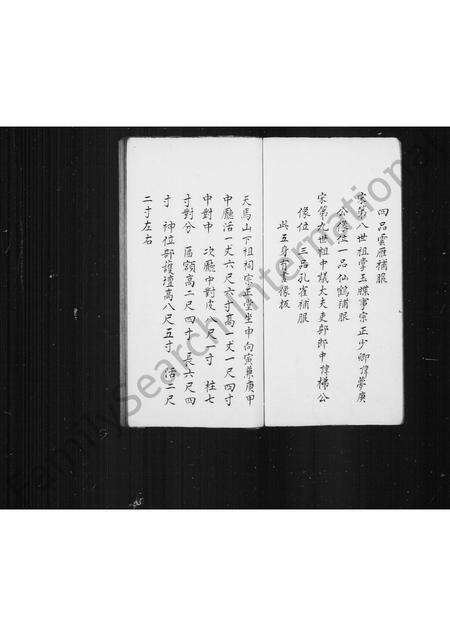 四品雲雁補服
宋第八世祖掌玉牒事宗正少卿諱夢庚
公像位一品仙鶴補服
宋第九世祖中議大夫吏部郎中諱梯公
像位三品孔雀補服
此五身
天馬山下祖祠宗正堂坐申向寅兼庚甲
中廳活一丈六尺六寸高一丈一尺四寸
中對中 次廳中對度八尺一寸 柱七
寸對分 區額高二尺四寸長六尺四
寸 神位部護壇高八尺五寸 活二尺
二寸左右
FamilySearch International